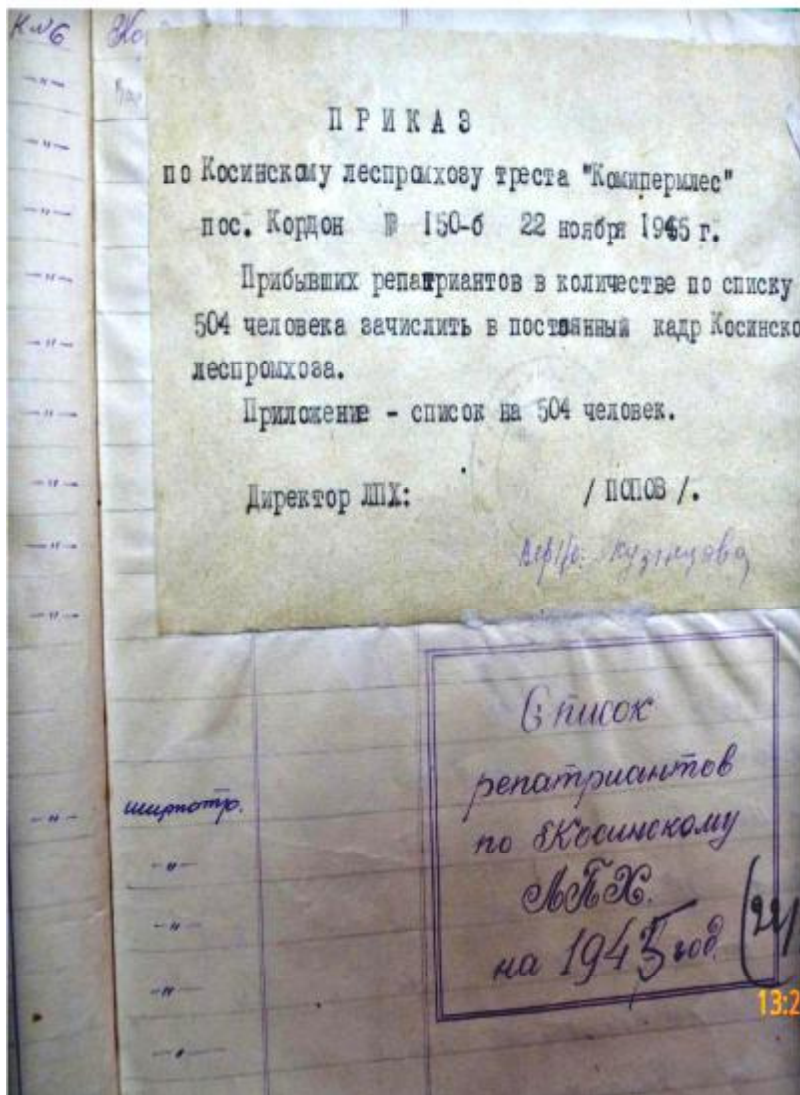 К №6
ПРИКАЗ
по Косинскому леспромхозу треста "Комипермлес"
пос. Кордон № 150-б 22 ноября 1945 г.
Прибывших репатриантов в количестве по списку
504 человека зачислить в постоянный кадр Косинско
леспромхоза.
Приложение - список на 504 человек.
Директор ЛПХ: / ПОПОВ /.
Кузнецова
Список
репатриантов
по Косинскому
ЛПХ.
на 1945 год.
ширпотр.
13:2